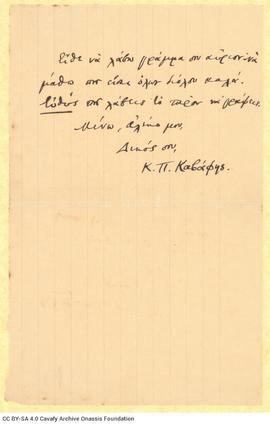 Εἴθε νὰ λάβω γράμμα σου αὔριον νὰ
μάθω πως εἶσαι ὅλως διόλου καλά.
Εὐθὺς που λάβεις το παρὸν νὰ γράψεις.
Μένω, Αλέκο μου,
Δικός σου,
Κ. Π. Καβάφης.
CC BY-SA 4.0 Cavafy Archive Onassis Foundation